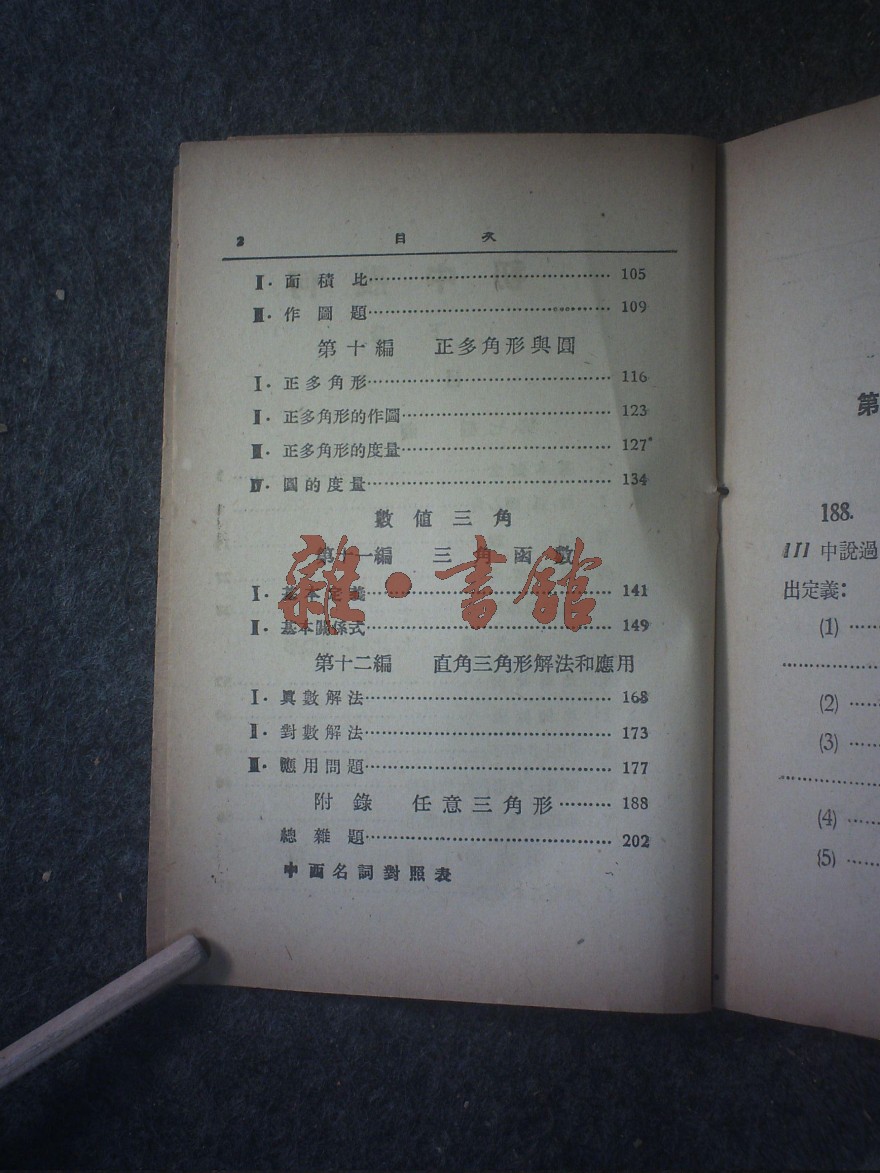 2 目 次
II. 面積比 105
III. 作圖題 109
第十編 正多角形與圓
I. 正多角形 116
II. 正多角形的作圖 123
III. 正多角形的度量 127
IV. 圓的度量 134
數値三角
第十一編 三角函數
I. 基本定義 141
II. 基本關係式 149
第十二編 直角三角形解法和應用
I. 眞數解法 168
II. 對數解法 173
III. 應用問題 177
附錄 任意三角形 188
總雜題 202
中西名詞對照表
雜·書館
第
188.
III 中說過
出定義：
(1)
(2)
(3)
(4)
(5)